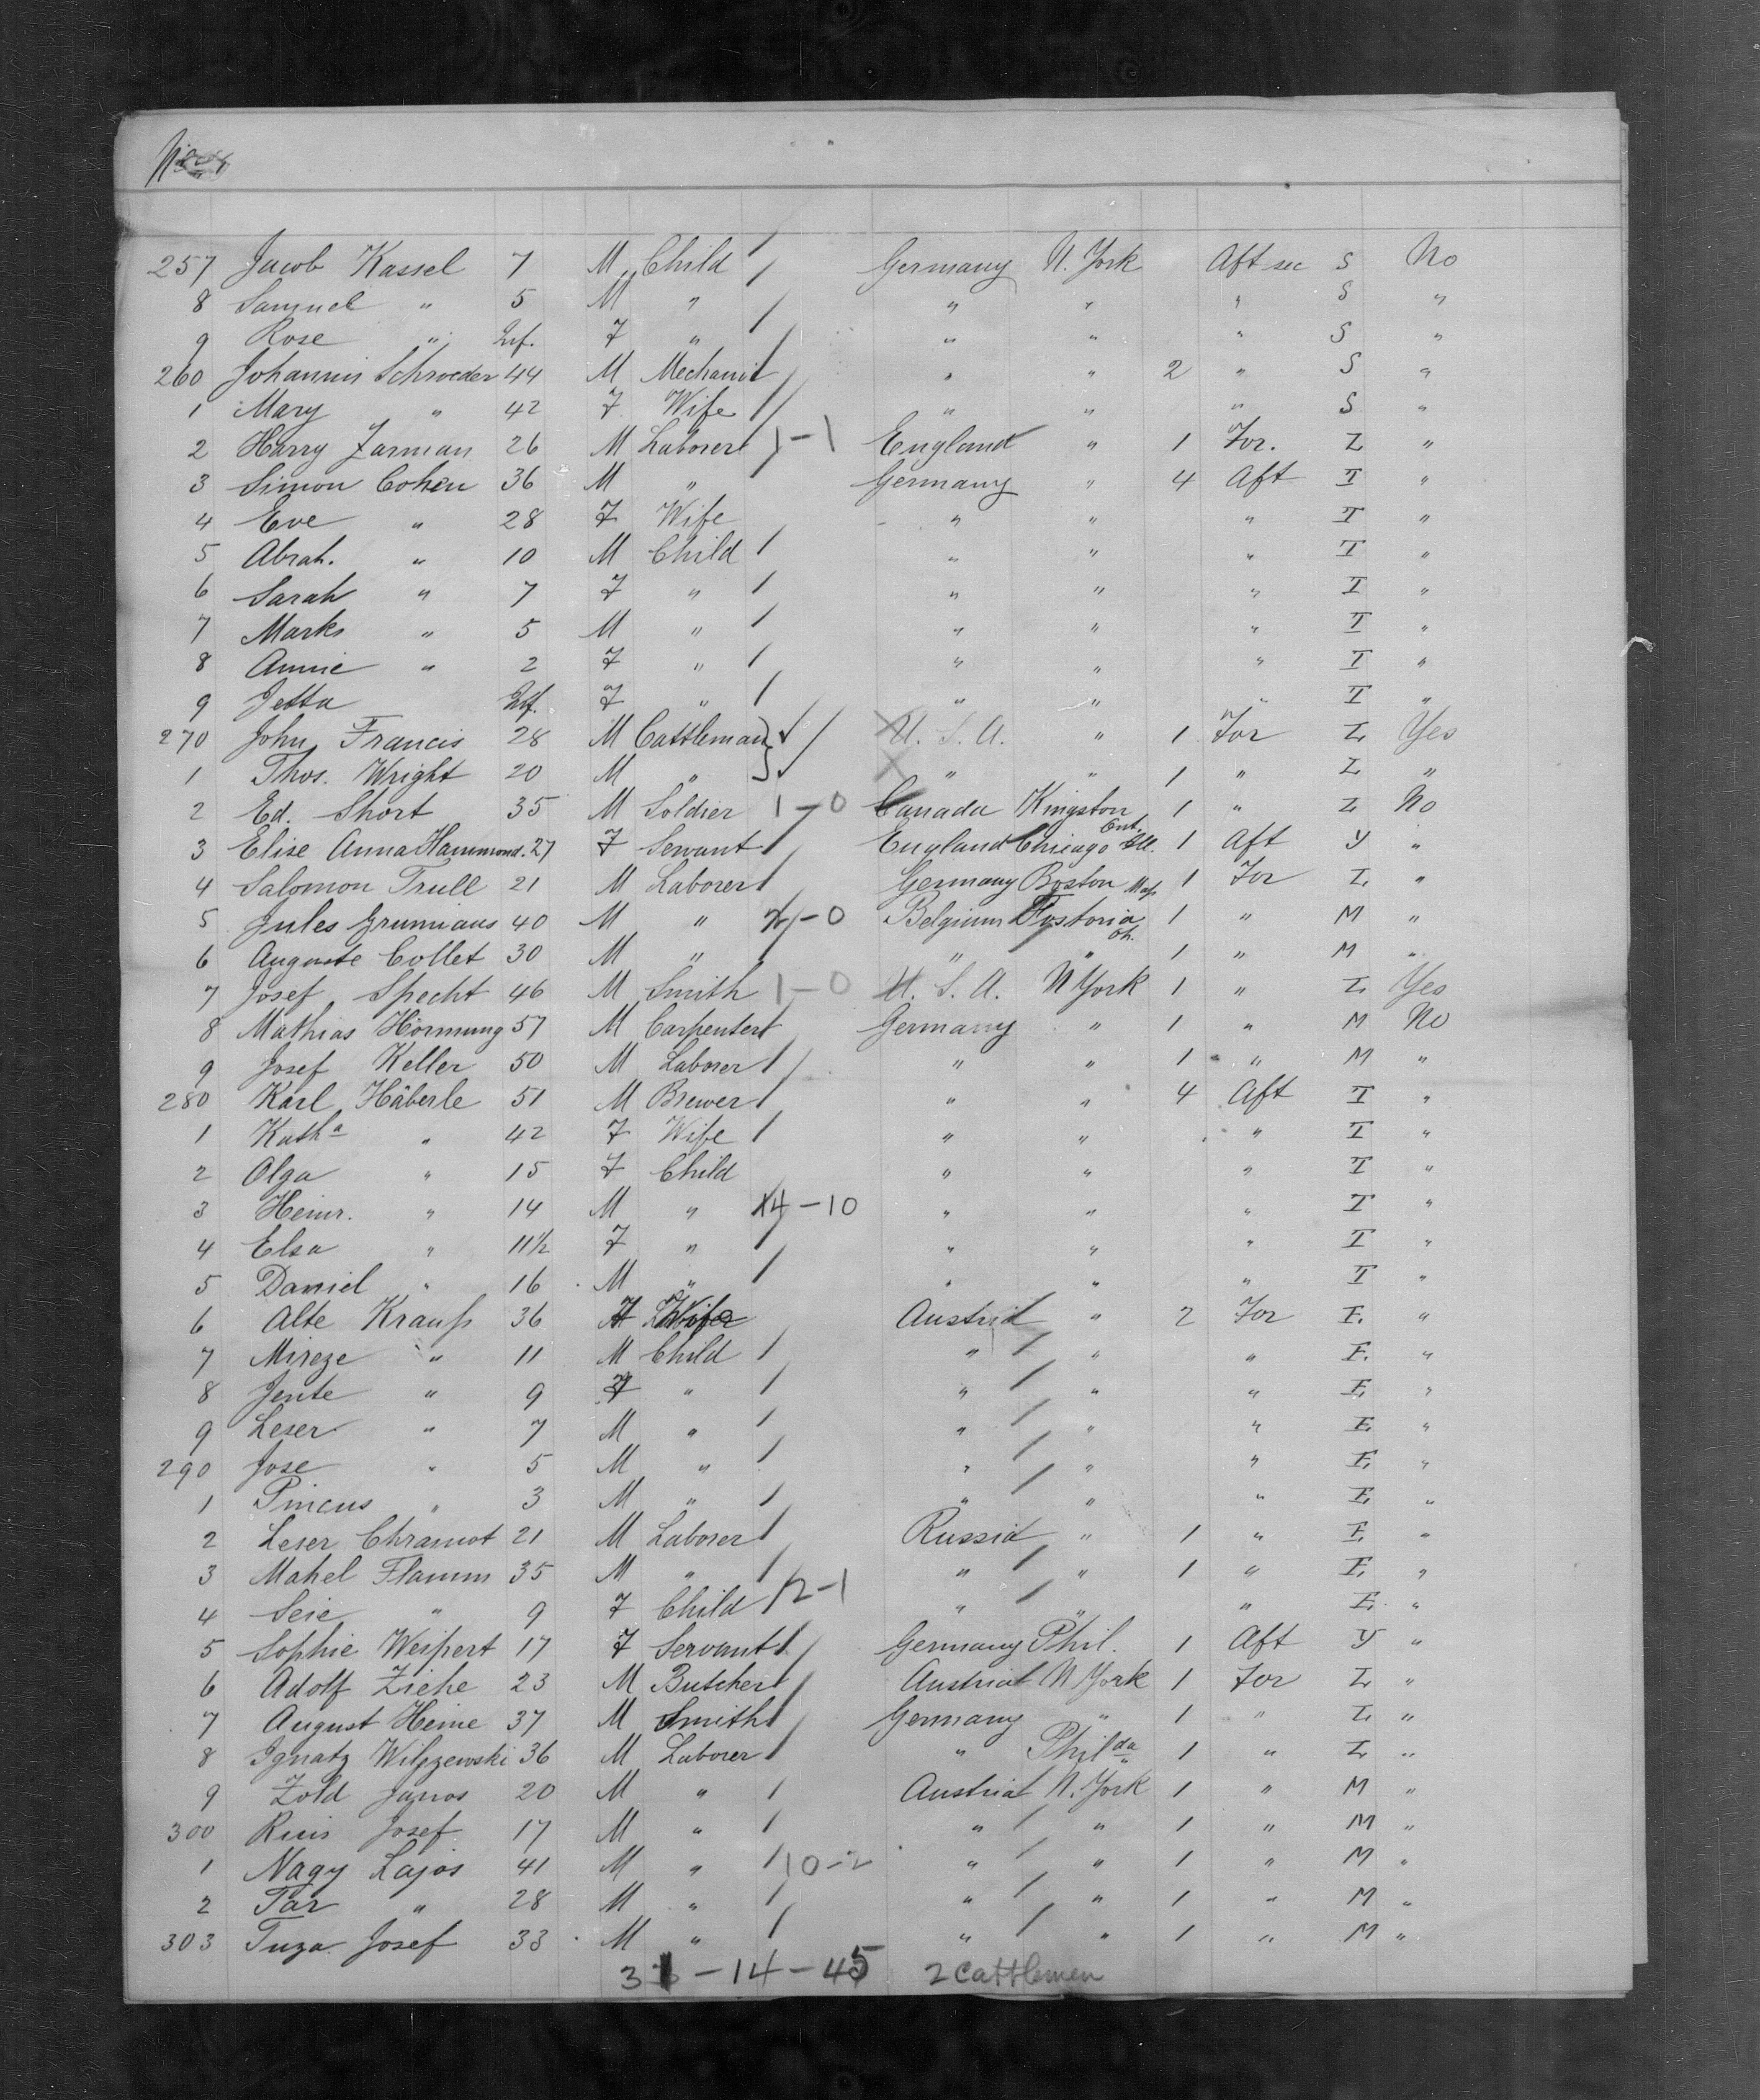 257 Jacob Kassel 7 M Child Germany N. York Aft sec S No
8 Samuel " 5 M " " " " S "
9 Rose " Inf. F " " " " S "
260 Johannis Schroeder 44 M Mechanic " " 2 " S "
1 Mary " 42 F Wife " " " S "
2 Harry Jarman 26 M Laborer 1-1 England " 1 For. L "
3 Simon Cohen 36 M " Germany " 4 Aft T "
4 Eve " 28 F Wife " " " T "
5 Abrah. " 10 M Child " " " T "
6 Sarah " 7 F " " " " T "
7 Marks " 5 M " " " " T "
8 Annie " 2 F " " " " T "
9 Jetta Inf. F " " " " T "
270 John Francis 28 M Cattleman U. S. A. " 1 For L Yes
1 Thos. Wright 20 M " " " 1 " L "
2 Ed. Short 35 M Soldier 1-0 Canada Kingston Ont. 1 " L No
3 Elise Anna Hammond. 27 F Servant England Chicago Ill. 1 Aft Y "
4 Salomon Trull 21 M Laborer Germany Boston Mass 1 For L "
5 Jules Grumiaus 40 M " -0 Belgium Fostoria Oh. 1 " M "
6 Auguste Collet 30 M " " " 1 " M "
7 Josef Specht 46 M Smith 1-0 U. S. A. N York 1 " L Yes
8 Mathias Hörmung 57 M Carpenter Germany " 1 " M No
9 Josef Keller 50 M Laborer " " 1 " M "
280 Karl Häberle 51 M Brewer " " 4 Aft T "
1 Katha " 42 F Wife " " " T "
2 Olga " 15 F Child " " " T "
3 Heinr. " 14 M " 14-10 " " " T "
4 Elsa " 11½ F " " " " T "
5 Daniel " 16 M " " " " T "
6 Alte Krauss 36 F Wife Austria " 2 For E. "
7 Mireze " 11 M Child " " " E. "
8 Jente " 9 F " " " " E "
9 Leser " 7 M " " " " E "
290 Jose " 5 M " " " " E "
1 Pincus " 3 M " " " " E "
2 Leser Chramot 21 M Laborer Russia " 1 " E "
3 Mahel Flamm 35 M " " " 1 " E "
4 Seie " 9 F Child 12-1 " " " E "
5 Sophie Weipert 17 F Servant Germany Phil. 1 Aft Y "
6 Adolf Ziehe 23 M Butcher Austria N York 1 For L "
7 August Heine 37 M Smith Germany " 1 " L "
8 Ignatz Wilszewski 36 M Laborer " Philda 1 " L "
9 Zold Janos 20 M " Austria N. York 1 " M "
300 Josef 17 M " " " 1 " M "
1 Nagy Lajos 41 M " 10-2 " " 1 " M "
2 Tar " 28 M " " " 1 " M "
303 Tuza Josef 33 M " " " 1 " M "
31-14-45 2 Cattlemen